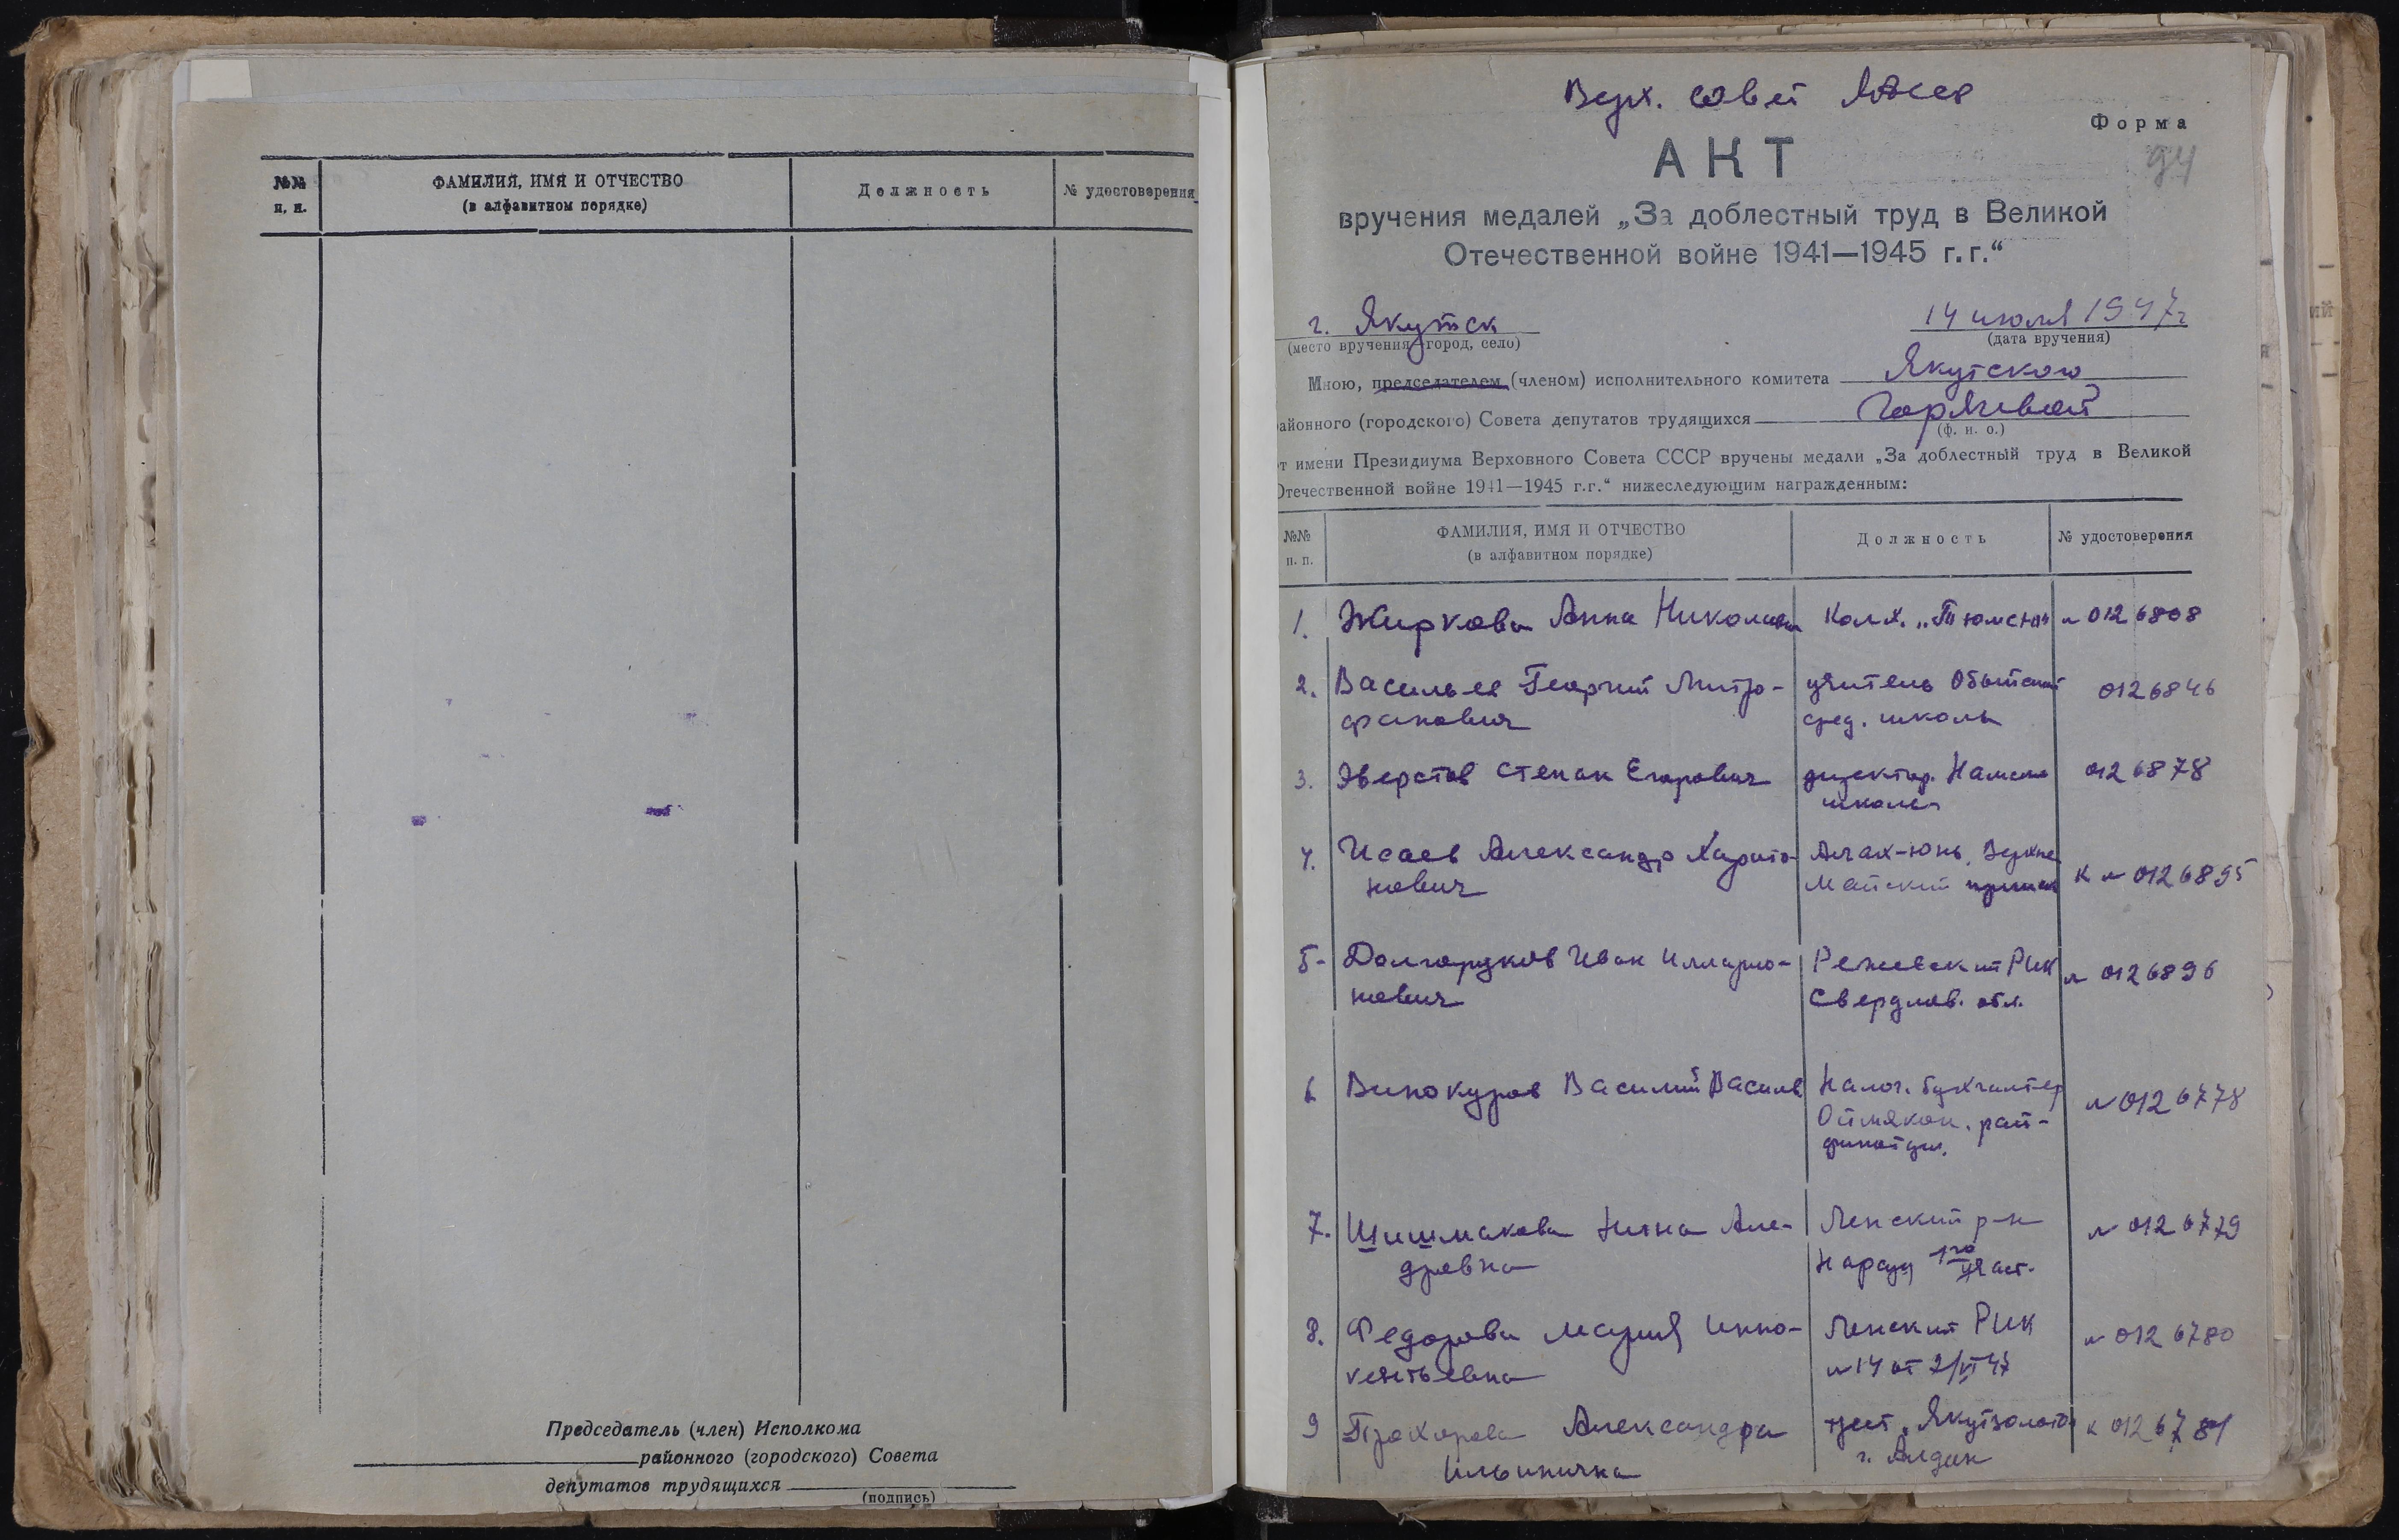 №№ п. п.
ФАМИЛИЯ, ИМЯ И ОТЧЕСТВО
(в алфавитном порядке)
Должность
№ удостоверения
Председатель (член) Исполкома
районного (городского) Совета
депутатов трудящихся
(подпись)
Верх. совет ЯАССР
Форма
94
АКТ
вручения медалей „За доблестный труд в Великой
Отечественной войне 1941—1945 г.г.“
г. Якутск
14 июля 1947г
(место вручения—город, село)
(дата вручения)
Мною, председателем (членом) исполнительного комитета Якутского
айонного (городского) Совета депутатов трудящихся Горячевой
(ф. и. о.)
т имени Президиума Верховного Совета СССР вручены медали „За доблестный труд в Великой
Отечественной войне 1941—1945 г.г.“ нижеследующим награжденным:
№№ п. п.
ФАМИЛИЯ, ИМЯ И ОТЧЕСТВО
(в алфавитном порядке)
Должность
№ удостоверения
1. Жиркова Анна Николаевн Колх. „Тюмсюк" № 0126808
2. Васильев Георгий Митро- учитель 0126846
фанович сред. школы
3. Эверстов Степан Егорович директор. Намск 0126878
школы
4. Исаев Александр Харито- Аллах-юнь, Верхне 
нович Майский прииск К № 0126895
5- Долгоруков Иван Илларио- Режевский РИК № 0126896
нович Свердлов. обл.
6 Винокуров Василий Васильев Налог. бухгалтер № 0126778
Оймякон. рай-
финотдел.
7. Шишмакова Нина Але- Ленский р-н № 0126779
дровна Нарсуд 1го участ.
8. Федорова Мария Инно- Ленский РИК № 0126780
кентьевна №14 от 2/VI 47
9 Прохорова Александра трест „Якутзолото" № 0126781
Ильинична г. Алдан